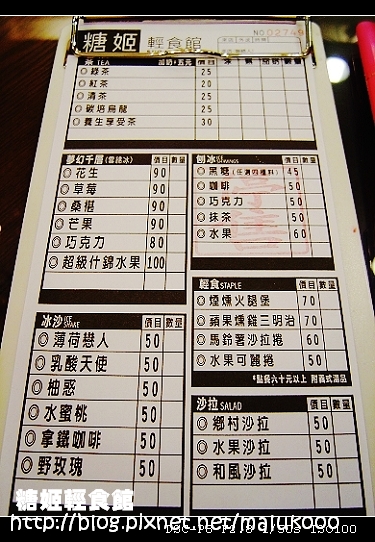 糖姬 輕食館 NO 02749
茶 TEA 加奶+五元 價目 品項 數量
◎綠茶 25
◎紅茶 20
◎清茶 25
◎碳培烏龍 25
◎養生享受茶 30
夢幻千層(雪綿冰) 價目 數量
◎花生 90
◎草莓 90
◎桑椹 90
◎芒果 90
◎巧克力 80
◎超級什錦水果 100
刨冰 價目 數量
◎黑糖(任選四種料) 45
◎咖啡 50
◎巧克力 50
◎抹茶 50
◎水果 60
輕食 STAPLE 價目 數量
◎煙燻火腿堡 70
◎蘋果燻雞三明治 70
◎馬鈴薯沙拉捲 60
◎水果可麗捲 50
*點餐六十元以上 附西式湯品
冰沙 ICE SHAKE 價目 數量
◎薄荷戀人 50
◎乳酸天使 50
◎柚惑 50
◎水蜜桃 50
◎拿鐵咖啡 50
◎野玫瑰 50
沙拉 SALAD 價目 數量
◎鄉村沙拉 50
◎水果沙拉 50
◎和風沙拉 50
糖姬輕食館
http://blog.pixnet.net/majukooo